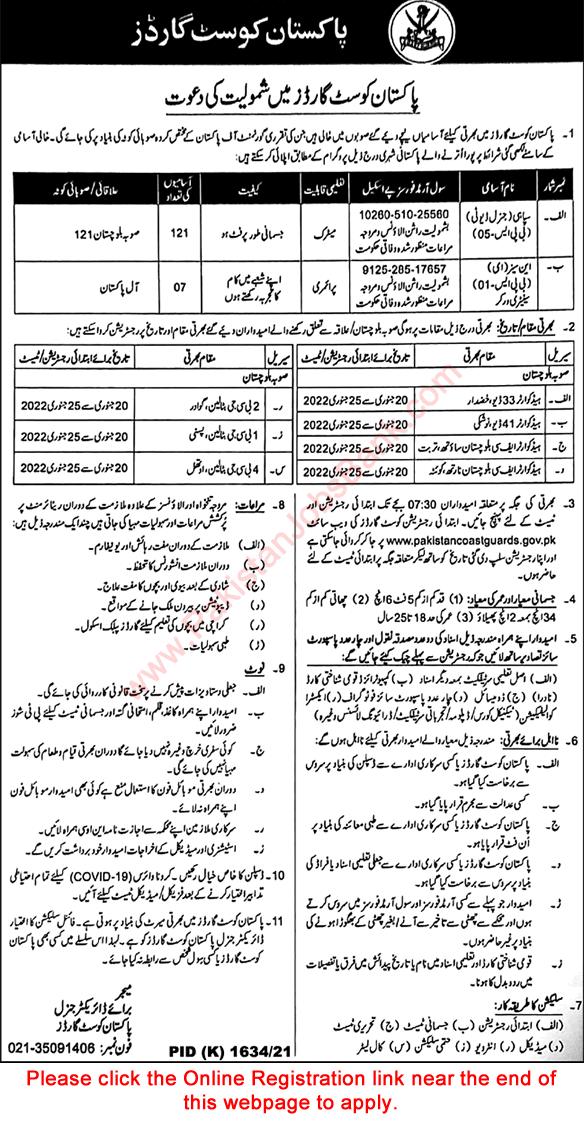 پاکستان کوسٹ گارڈز
پاکستان کوسٹ گارڈز میں شمولیت کی دعوت
1- پاکستان کوسٹ گارڈز میں بھرتی کیلئے آسامیاں نیچے دیے گئے صوبوں میں خالی ہیں جن کی تقرری گورنمنٹ آف پاکستان کے مختص کردہ صوبائی کوٹہ کی بنیاد پر کی جائے گی۔ خالی آسامی
کے سامنے لکھی گئی شرائط پر پورا اترنے والے پاکستانی شہری درج ذیل پروگرام کے مطابق اپلائی کر سکتے ہیں:
نمبر شمار نام آسامی سول آرمڈ فورسز پے اسکیل تعلیمی قابلیت کیفیت آسامیوں کی تعداد علاقائی / صوبائی کوٹہ
الف۔ سپاہی (جنرل ڈیوٹی) (بی پی ایس-05) 10260-510-25560 بشمولیت راشن الاؤنس و مروجہ مراعات منظور شدہ وفاقی حکومت میٹرک جسمانی طور پر فٹ ہو 121 صوبہ بلوچستان 121
ب۔ این سیز (ای) (بی پی ایس-01) سینیٹری ورکر 9125-285-17657 بشمولیت راشن الاؤنس و مروجہ مراعات منظور شدہ وفاقی حکومت پرائمری اپنے شعبے میں کام کا تجربہ رکھتے ہوں 07 آل پاکستان
2- بھرتی مقام / تاریخ: بھرتی درج ذیل مقامات پر ہوگی صوبہ بلوچستان / علاقہ سے تعلق رکھنے والے امیدواران دیے گئے بھرتی مقام اور تاریخ پر رجسٹریشن کروا سکتے ہیں:
سیریل مقام بھرتی تاریخ برائے ابتدائی رجسٹریشن / ٹیسٹ
صوبہ بلوچستان
الف۔ ہیڈ کوارٹر 33 ڈیو، خضدار 20 جنوری سے 25 جنوری 2022
ب۔ ہیڈ کوارٹر 41 ڈیو، نوشکی 20 جنوری سے 25 جنوری 2022
ج۔ ہیڈ کوارٹر ایف سی بلوچستان ساؤتھ، تربت 20 جنوری سے 25 جنوری 2022
د۔ ہیڈ کوارٹر ایف سی بلوچستان نارتھ، کوئٹہ 20 جنوری سے 25 جنوری 2022
سیریل مقام بھرتی تاریخ برائے ابتدائی رجسٹریشن / ٹیسٹ
صوبہ بلوچستان
ر۔ 2 پی سی جی بٹالین، گوادر 20 جنوری سے 25 جنوری 2022
ز۔ 1 پی سی جی بٹالین، پسنی 20 جنوری سے 25 جنوری 2022
س۔ 4 پی سی جی بٹالین، اوتھل 20 جنوری سے 25 جنوری 2022
3- بھرتی کی جگہ پر متعلقہ امیدواران 07:30 بجے تک ابتدائی رجسٹریشن اور
ٹیسٹ کے لئے پہنچ جائیں۔ ابتدائی رجسٹریشن کوسٹ گارڈز کی ویب سائٹ
www.pakistancoastguards.gov.pk پر جا کر کرائی جا سکتی ہے
اور اپنا رجسٹریشن سلپ دی گئی تاریخ کو ساتھ لیکر متعلقہ جگہ پر ابتدائی ٹیسٹ کے لئے
حاضر ہوں۔
4- جسمانی معیار اور عمر کی معیاد: (1) قد کم از کم 5 فٹ 6 انچ (2) چھاتی کم از کم
34 انچ بمعہ 2 انچ پھیلاؤ (3) عمر کی حد 18 تا 25 سال
5- امیدوار اپنے ہمراہ مندرجہ ذیل اسناد کی دو عدد مصدقہ نقول اور چار عدد پاسپورٹ
سائز تصاویر ساتھ لائیں جو کہ رجسٹریشن سے پہلے چیک کئے جائیں گے:
(الف) اصل تعلیمی سرٹیفکیٹ بمعہ دیگر اسناد (ب) کمپیوٹرائزڈ قومی شناختی کارڈ
(نادرا) (ج) ڈومیسائل (د) چار عدد پاسپورٹ سائز فوٹو گراف (ر) ایکسٹرا
کوالیفیکیشن (ٹیکنیکل کورس / ڈپلومہ / تجرباتی سرٹیفکیٹ / ڈرائیونگ لائسنس وغیرہ)
6- نااہل برائے بھرتی: مندرجہ ذیل معیار والے امیدوار بھرتی کیلئے نااہل ہوں گے:
الف۔ پاکستان کوسٹ گارڈز یا کسی سرکاری ادارے سے ڈسپلن کی بنیاد پر سروس
سے برخاست کیا گیا ہو۔
ب۔ کسی عدالت سے مجرم قرار پایا گیا ہو۔
ج۔ پاکستان کوسٹ گارڈز یا کسی سرکاری ادارے سے طبی معائنہ کی بنیاد پر
ان فٹ قرار پایا ہو۔
د۔ پاکستان کوسٹ گارڈز یا کسی سرکاری ادارے سے جعلی تعلیمی اسناد یا فراڈ کی
بنیاد پر سروس سے برخاست کیا گیا ہو۔
ر۔ امیدوار جو پہلے سے کسی آرمڈ فورسز اور سول آرمڈ فورسز میں سروس کرتے
ہوں اور محکمے سے چھٹی سے تاخیر سے آنے / بغیر چھٹی کے بھگوڑا ہونے کی
بنیاد پر غیر حاضر ہوں۔
ز۔ قومی شناختی کارڈ اور تعلیمی اسناد میں نام یا تاریخ پیدائش میں فرق یا تفصیلات
میں ردوبدل کا ہونا۔
7- سلیکشن کا طریقہ کار:
(الف) ابتدائی رجسٹریشن (ب) جسمانی ٹیسٹ (ج) تحریری ٹیسٹ
(د) میڈیکل (ر) انٹرویو (ز) حتمی سلیکشن (س) کال لیٹر
8- مراعات: مروجہ تنخواہ اور الاؤنسز کے علاوہ ملازمت کے دوران / ریٹائرمنٹ پر
پرکشش مراعات اور سہولیات مہیا کی جاتی ہیں چند ایک مندرجہ ذیل ہیں:
(الف) ملازمت کے دوران مفت رہائش اور یونیفارم۔
(ب) دوران ملازمت انشورنس کا تحفظ۔
(ج) شادی کے بعد بیوی اور بچوں کا مفت علاج۔
(د) ڈیپوٹیشن پر بیرون ملک جانے کے مواقع۔
(ر) کراچی میں بچوں کی تعلیم کیلئے گارڈز پبلک اسکول۔
(ز) طبی سہولیات۔
9- نوٹ
الف۔ جعلی دستاویزات پیش کرنے پر سخت قانونی کارروائی کی جائے گی۔
ب۔ امیدوار اپنے ہمراہ کاغذ، قلم، امتحانی گتہ اور جسمانی ٹیسٹ کیلئے پی ٹی شوز
ضرور لائیں۔
ج۔ کوئی سفری خرچ وغیرہ نہیں دیا جائے گا دوران بھرتی قیام و طعام کی سہولت
مہیا نہیں کی جائے گی۔
د۔ دوران بھرتی موبائل فون کا استعمال منع ہے کوئی بھی امیدوار موبائل فون
اپنے ہمراہ نہ لائے۔
ر۔ سرکاری ملازمین اپنے محکمہ سے اجازت نامہ این او سی ہمراہ لائیں۔
ز۔ اسٹیشنری اور میڈیکل کے اخراجات امیدوار خود برداشت کریں گے۔
10- ڈسپلن کا خاص خیال رکھیں۔ کرونا وائرس (COVID-19) کیلئے تمام احتیاطی
تدابیر اختیار کرنے کے بعد فزیکل / میڈیکل ٹیسٹ کیلئے آئیں۔
11- پاکستان کوسٹ گارڈز میں بھرتی میرٹ کی بنیاد پر ہوتی ہے۔ فائنل سلیکشن کا اختیار
ڈائریکٹر جنرل پاکستان کوسٹ گارڈز کو ہے۔ لہذا اس سلسلے میں کسی بھی پاکستان
کوسٹ گارڈز یا کسی سول شخص سے رابطہ نہ کیا جائے۔
میجر
برائے ڈائریکٹر جنرل
پاکستان کوسٹ گارڈز
فون نمبر: 021-35091406
PID (K) 1634/21
www.PakistanJobsBank.com
Please click the Online Registration link near the end of
this webpage to apply.